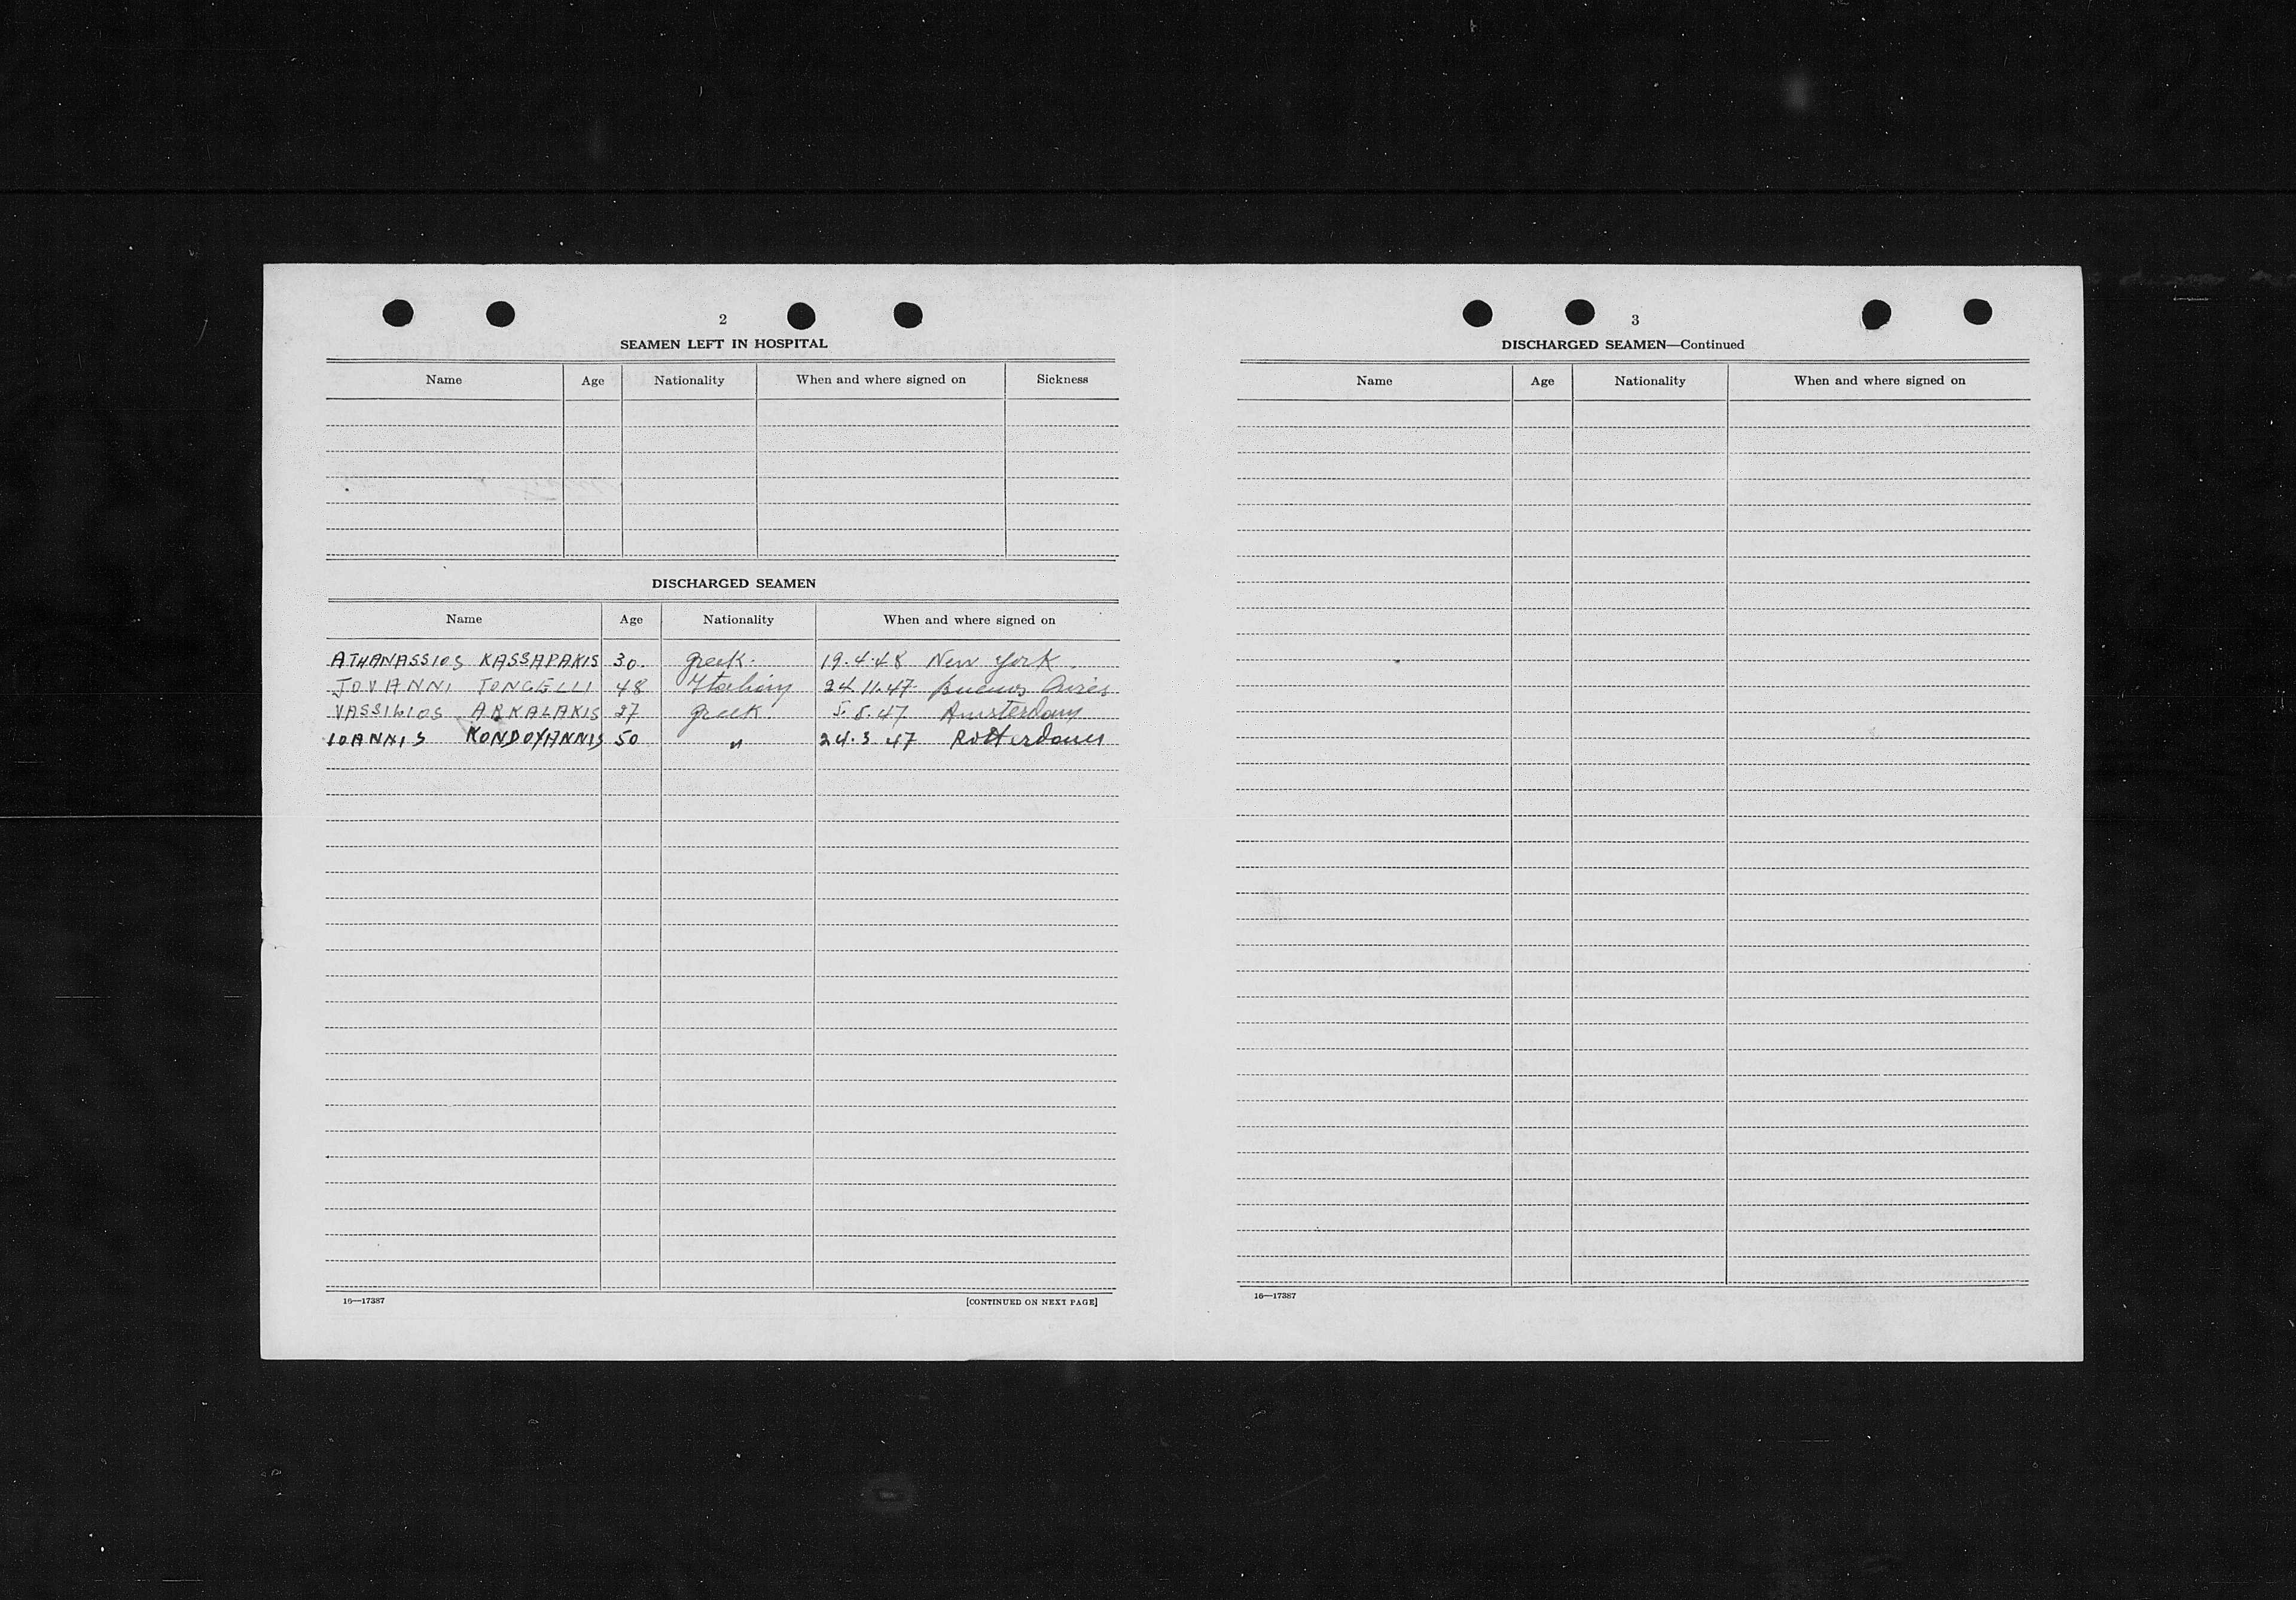 2
SEAMEN LEFT IN HOSPITAL
Name Age Nationality When and where signed on Sickness
DISCHARGED SEAMEN
Name Age Nationality When and where signed on
ATHANASSIOS KASSAPAKIS 30. Greek. 19.4.48 New York.
JOVANNI TONCELLI 48 24.11.47 Buenos Aires
VASSILIOS ARKALAKIS 27 Greek. 5.8.47 Amsterdam
IOANNIS KONDOYANNIS 50 " 24.3.47 Rotterdam
16—17387 [CONTINUED ON NEXT PAGE]
3
DISCHARGED SEAMEN—Continued
Name Age Nationality When and where signed on
16—17387